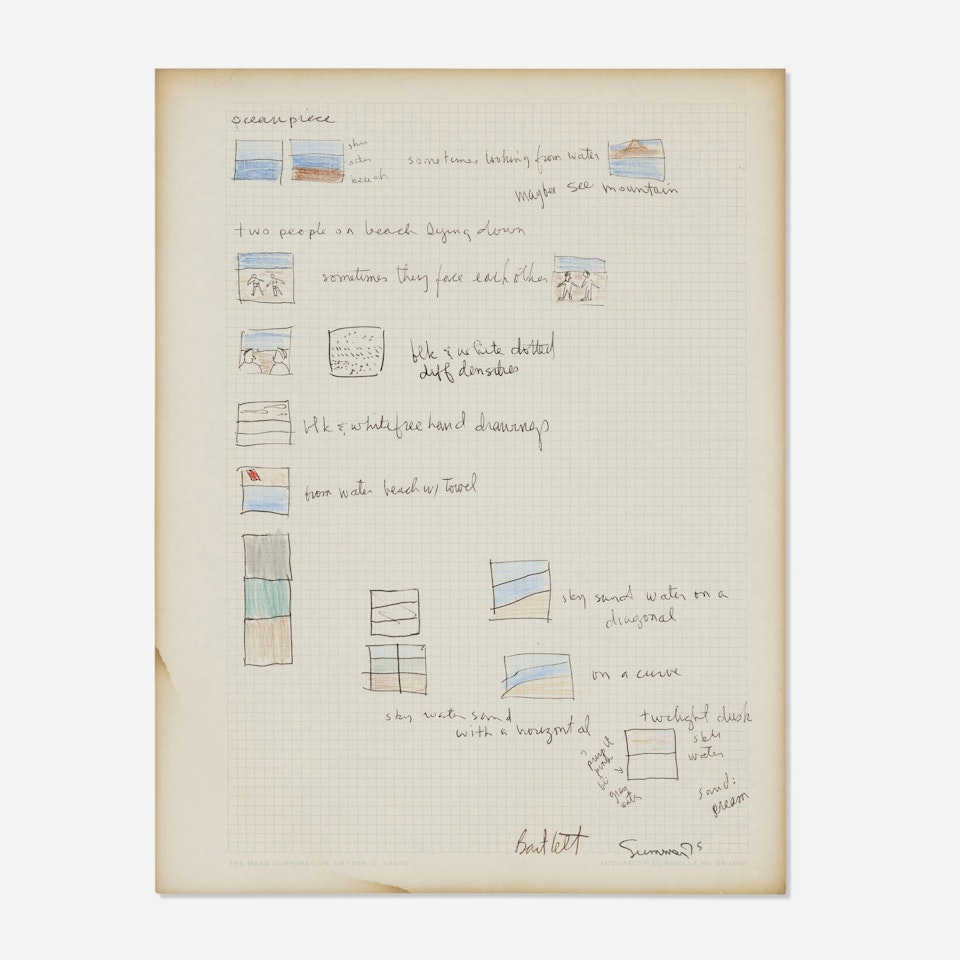 oceanpiece
sky
water
beach
sometimes looking from water
maybe see mountain
two people on beach lying down
sometimes they face each other
blk & white dotted
diff densities
blk & white freehand drawings
from water beach w/ towel
sky sand water on a
diagonal
on a curve
sky water sand
with a horizontal
twilight dusk
sky
water
pink
gray
sand:
cream
Bartlett
Summer 75
THE MEAD CORPORATION, DAYTON, O. 45402
ACCURACY® QUADRILLE No.